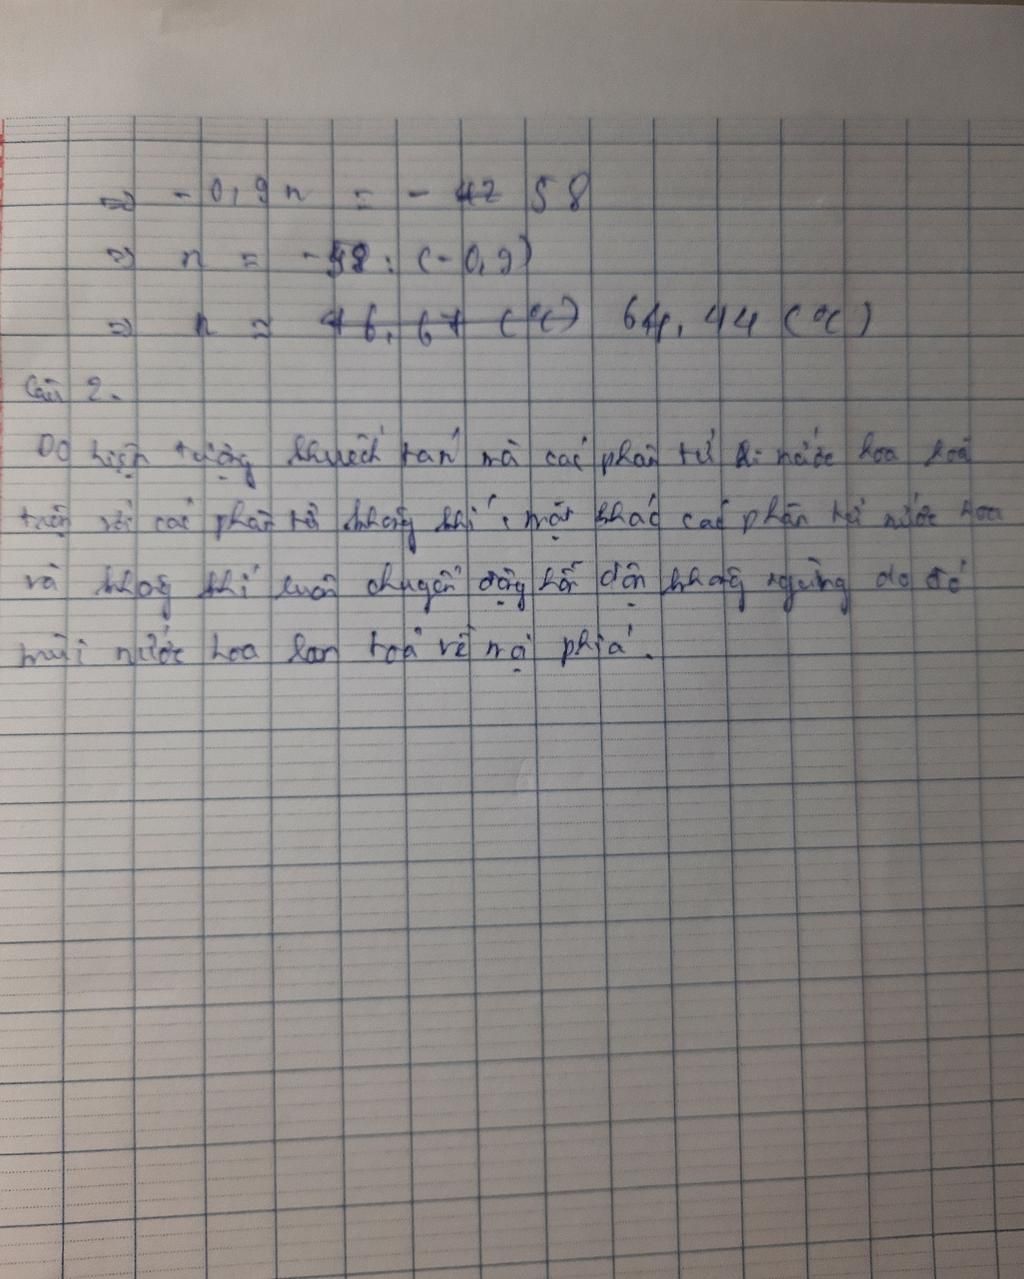 => - 0,9 n = - 42 58
=> n = - 58 : (- 0,9)
=> n = 46,67 (°C) 64,44 (°C)
Câu 2.
Do hiện tượng khuếch tán mà các phân tử nước hoa hoà
trộn với các phân tử không khí, mặt khác các phân tử nước hoa
và không khí luôn chuyển động hỗn độn không ngừng do đó
mùi nước hoa lan toả về mọi phía.